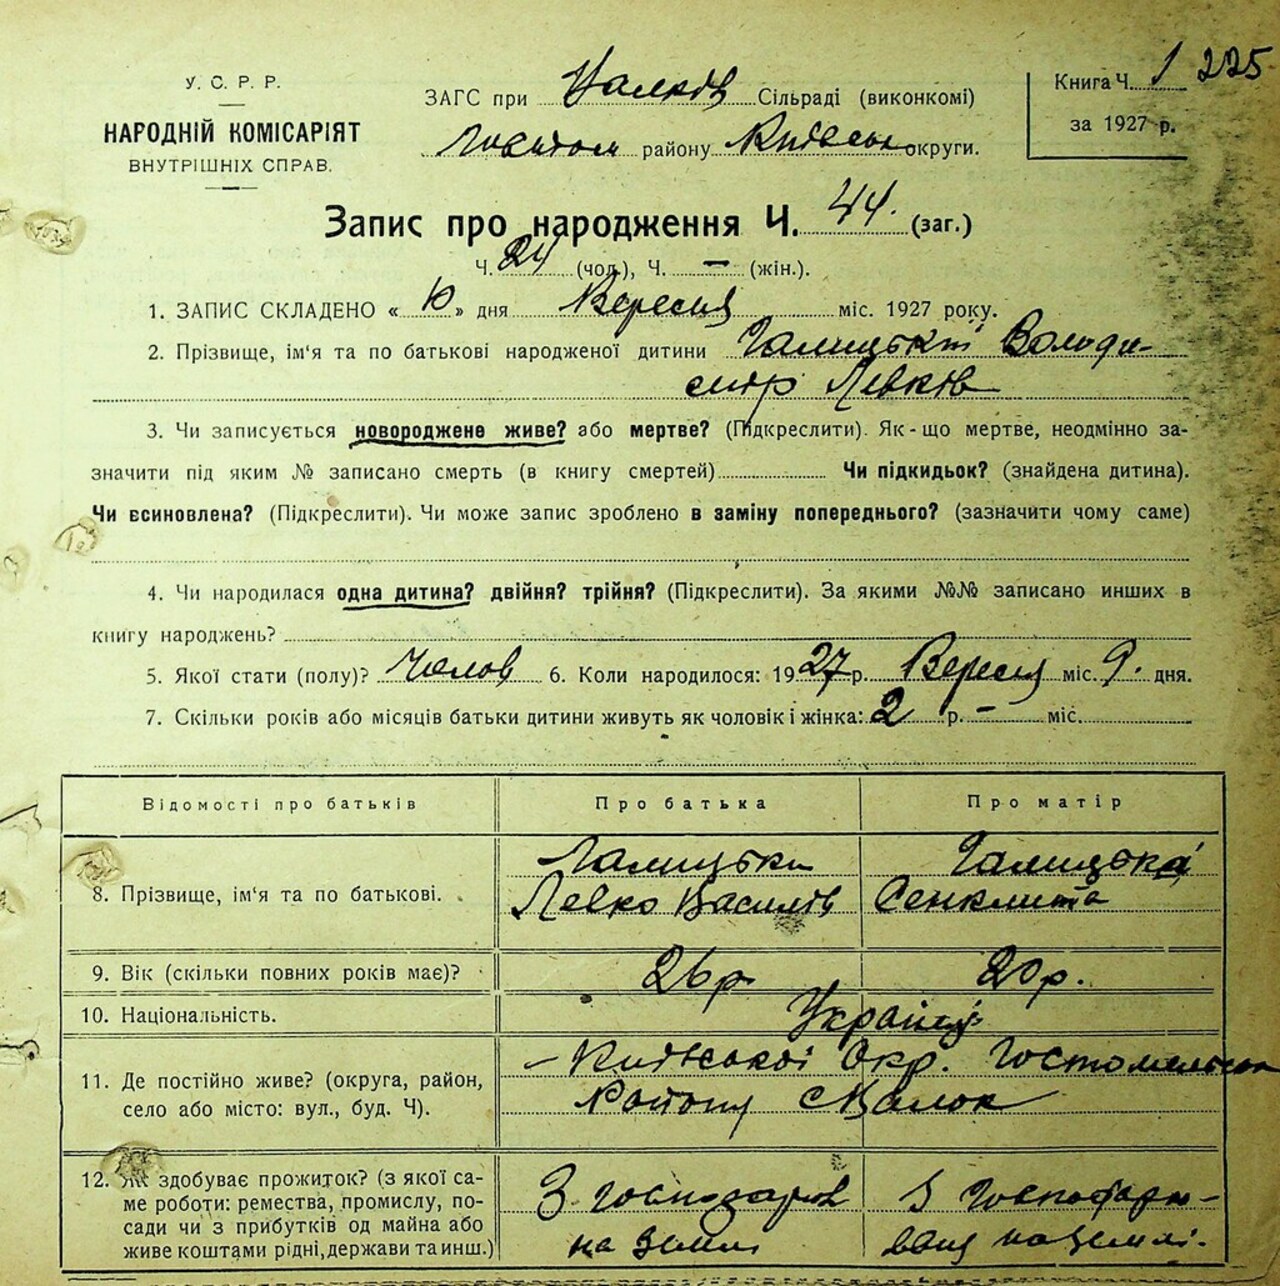 У. С. Р. Р.
НАРОДНІЙ КОМІСАРІЯТ
ВНУТРІШНІХ СПРАВ.
ЗАГС при Сільраді (виконкомі)
району Київськ округи.
Книга Ч. 1 225
за 1927 р.
Запис про народження Ч. 44. (заг.)
Ч. 24 (чол.), Ч. — (жін.).
1. ЗАПИС СКЛАДЕНО «10» дня Вересня міс. 1927 року.
2. Прізвище, ім'я та по батькові народженої дитини Галицькій Володи-
мір Левків
3. Чи записується новороджене живе? або мертве? (Підкреслити). Як-що мертве, неодмінно за-
значити під яким № записано смерть (в книгу смертей) Чи підкидьок? (знайдена дитина).
Чи всиновлена? (Підкреслити). Чи може запис зроблено в заміну попереднього? (зазначити чому саме)
4. Чи народилася одна дитина? двійня? трійня? (Підкреслити). За якими №№ записано инших в
книгу народжень?
5. Якої стати (полу)? Чолов 6. Коли народилося: 1927 р. Вересня міс. 9. дня.
7. Скільки років або місяців батьки дитини живуть як чоловік і жінка: 2 р. — міс.
Відомості про батьків Про батька Про матір
Галицьки Галицька
8. Прізвище, ім'я та по батькові. Левко Василів Сенклита
9. Вік (скільки повних років має)? 26 р. 20 р.
10. Національність. Українці
11. Де постійно живе? (округа, район, Київської Окр. Гостомельськ
село або місто: вул., буд. Ч). Району
12. Як здобуває прожиток? (з якої са-
ме роботи: ремества, промислу, по- З господарюв З Господарю-
сади чи з прибутків од майна або
живе коштами рідні, держави та инш.) на землі ваня на землі.